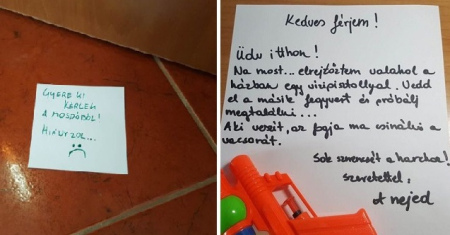 GYERE KI
KÉRLEK
A MOSDÓBÓL!
HIÁNYZOL...
Kedves férjem!
Üdv itthon!
Na most... elrejtőztem valahol a
házban egy vízipisztollyal. Vedd
el a másik fegyvert és próbálj
megtalálni...
Aki veszít, az fogja ma csinálni a
vacsorát.
Sok szerencsét a harchoz!
szeretettel,
A nejed